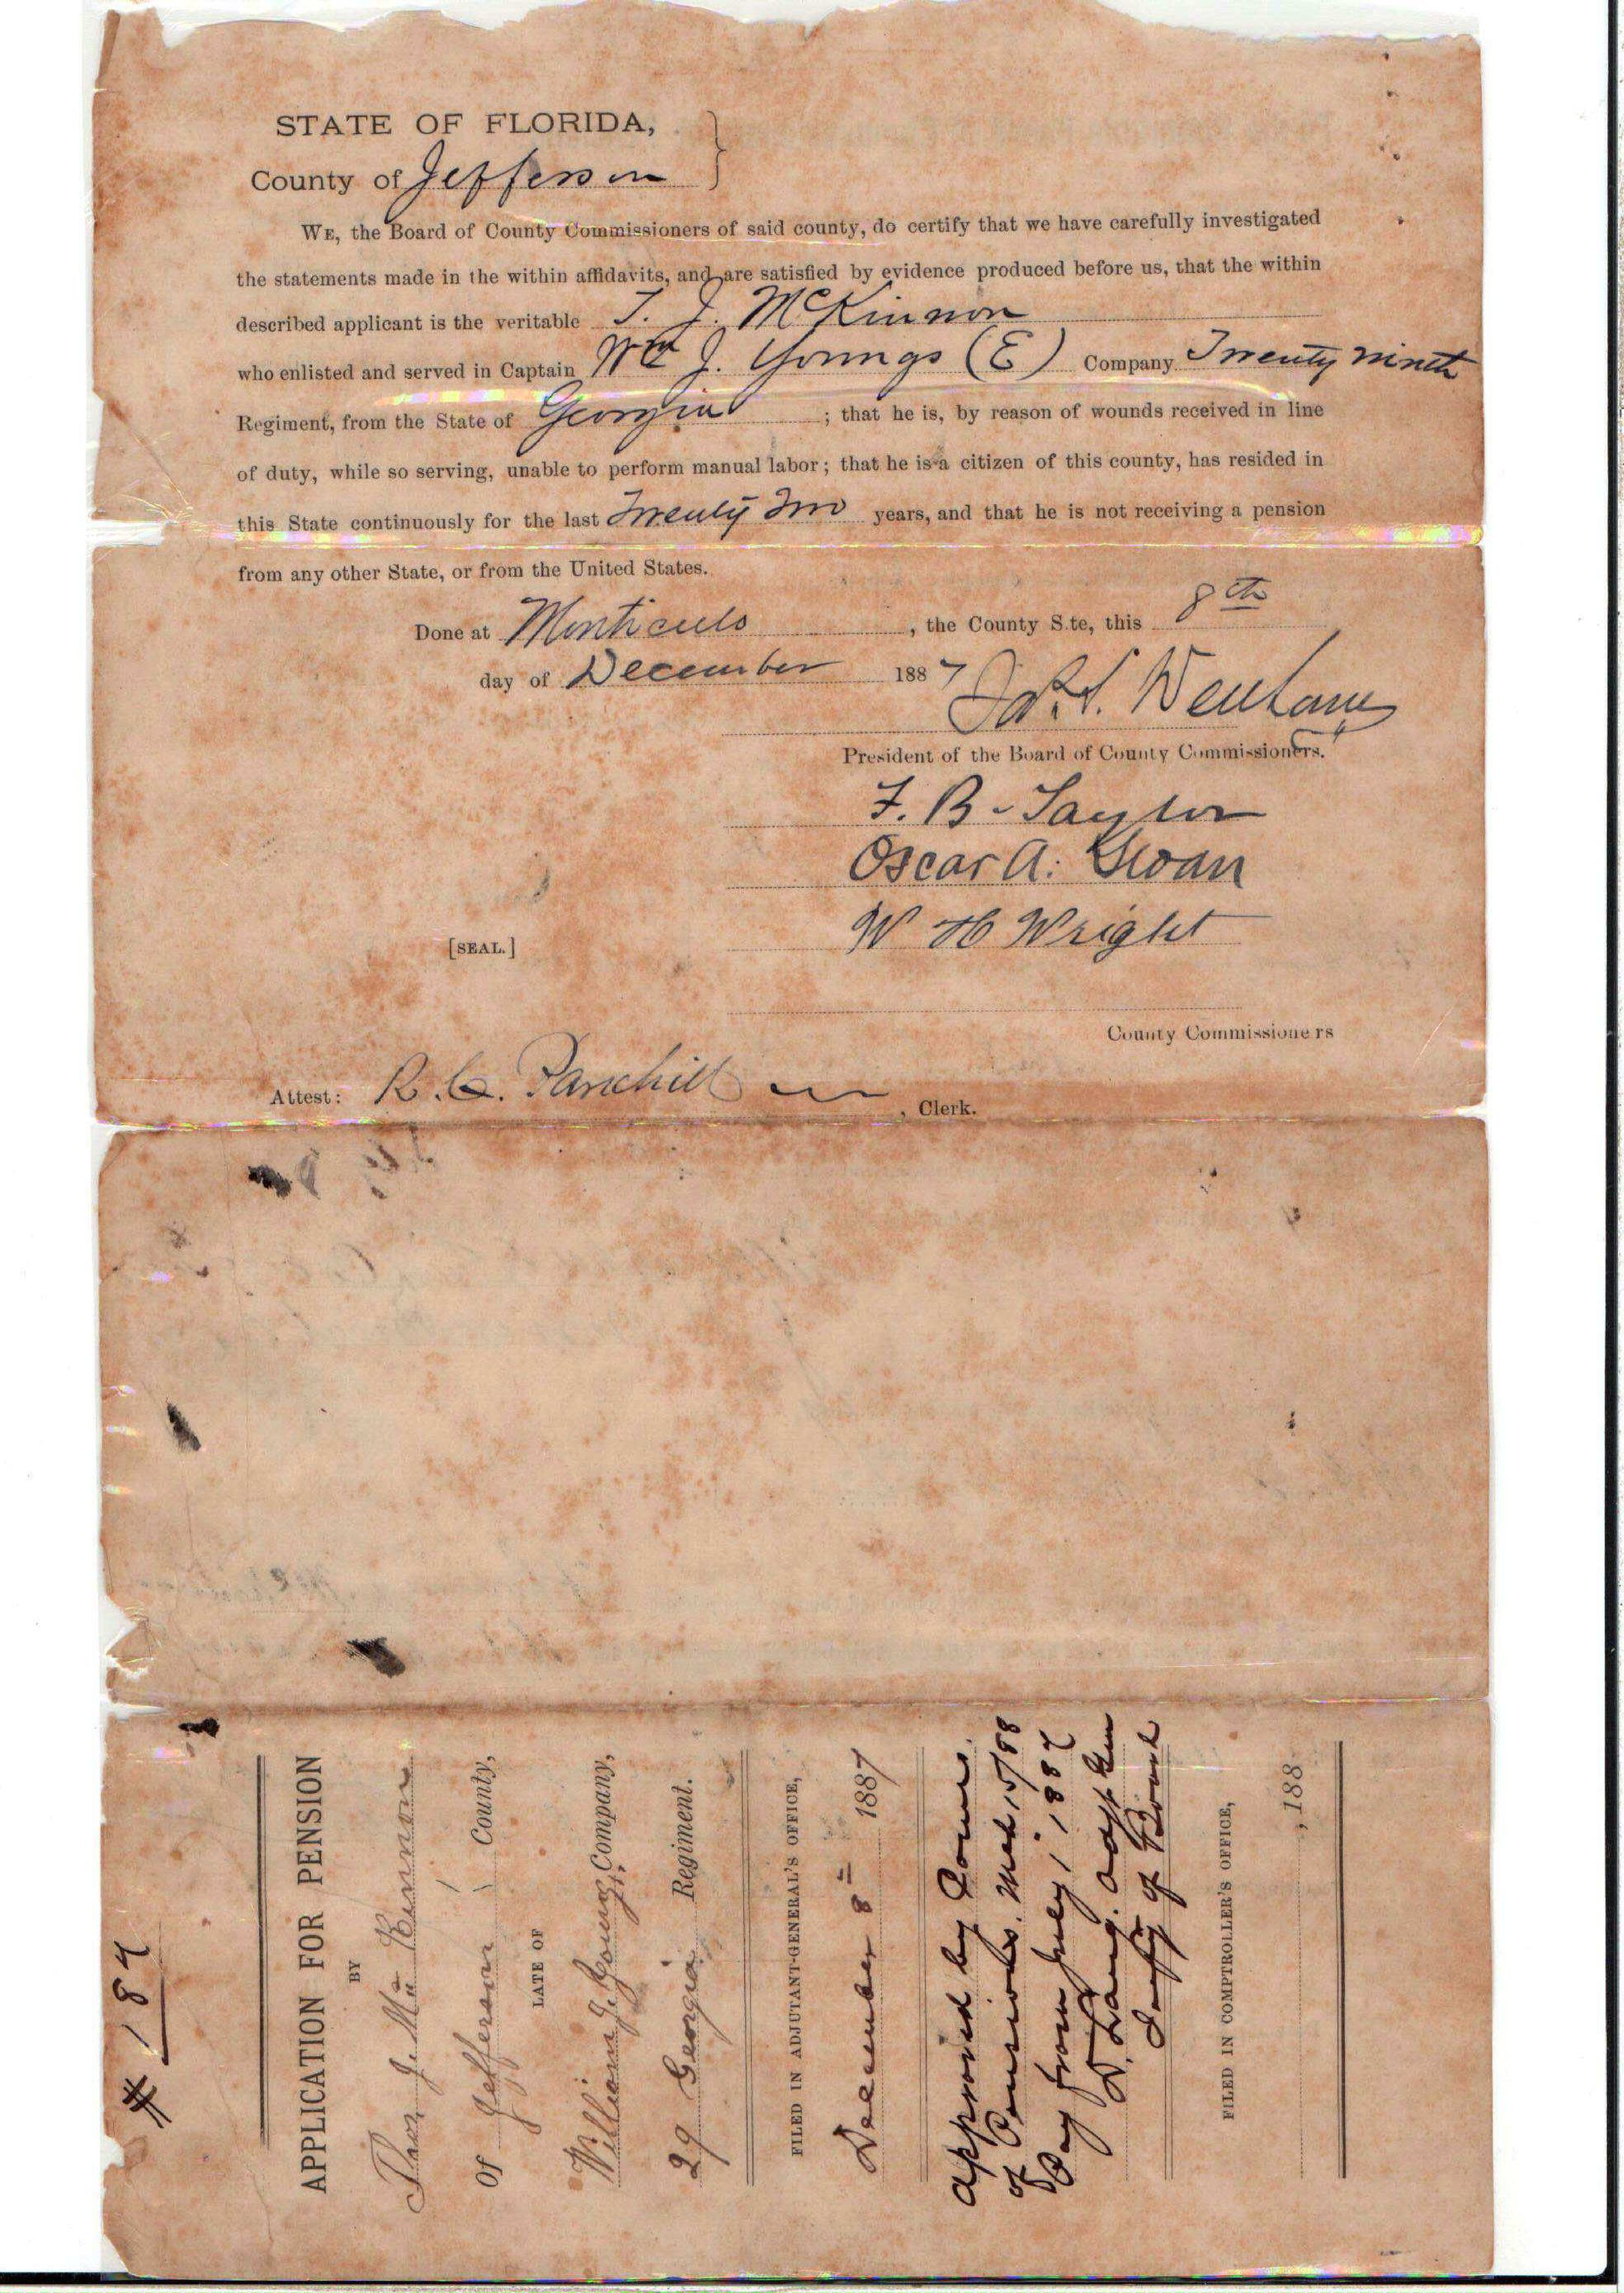 STATE OF FLORIDA,
County of Jefferson
WE, the Board of County Commissioners of said county, do certify that we have carefully investigated
the statements made in the within affidavits, and are satisfied by evidence produced before us, that the within
described applicant is the veritable T. J. McKinnon
who enlisted and served in Captain Wm J. Youngs (E) Company Twenty nineth
Regiment, from the State of Georgia ; that he is, by reason of wounds received in line
of duty, while so serving, unable to perform manual labor; that he is a citizen of this county, has resided in
this State continuously for the last Twenty Two years, and that he is not receiving a pension
from any other State, or from the United States.
Done at Monticello , the County S.te, this 8th
day of December 1887
President of the Board of County Commissioners.
F. B. Taylor
Oscar A. Swan
W H Wright
[SEAL.]
County Commissioners
Attest: R. C. Parkhill , Clerk.
# 184
APPLICATION FOR PENSION
BY
Thos J. McKinnon
Of Jefferson County,
LATE OF
William J. Young Company,
29 Georgia Regiment.
FILED IN ADJUTANT-GENERAL'S OFFICE,
December 8 1887
approved by Comrs.
of Pensions. Mch 15/88
Pay from July 1, 1887
D. Lang. Adjt Gen
Secty of Board
FILED IN COMPTROLLER'S OFFICE,
, 188